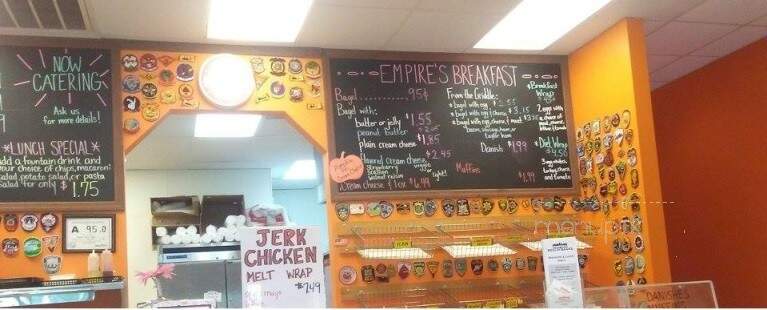 NOW
CATERING
Ask us
for more details!
*LUNCH SPECIAL*
add a fountain drink and
your choice of chips, macaroni
salad, potato salad, or pasta
salad for only $1.75
A 95.0
EMPIRE'S BREAKFAST
Bagel 95¢
Bagel with:
butter or jelly $1.55
peanut butter
plain cream cheese $1.85
flavored cream cheese $2.45
strawberry veggie
walnut raisin
cream cheese & lox $6.99
From the Griddle:
*bagel with egg
*bagel with egg, cheese $3.15
*bagel with egg, cheese & meat
bacon, sausage, ham, or
taylor ham
Danish $1.99
Muffins $1.99
*Breakfast
Wrap
2 eggs with
a choice of
meat, cheese,
*Diet Wrap
$4.50
3 egg whites,
turkey, cheese
and tomato
JERK
CHICKEN
MELT WRAP
$7.49
mayo
DANISHES
MUFFINS
menupix